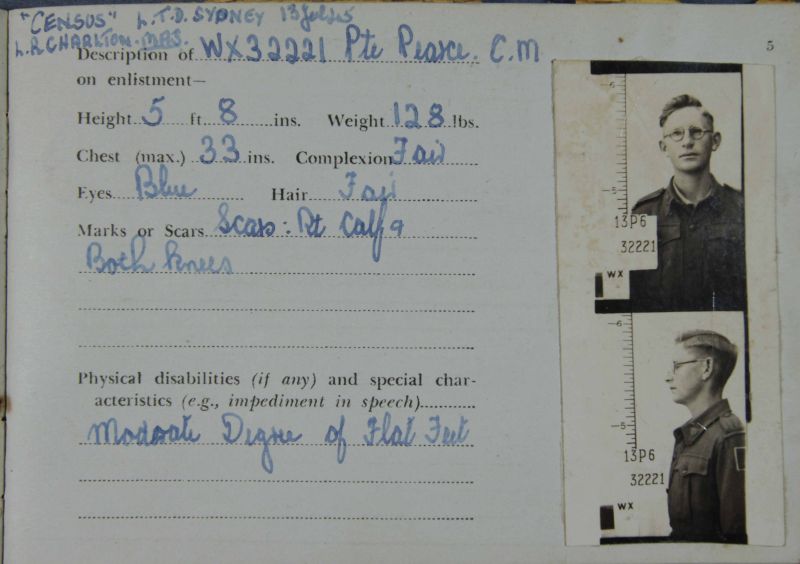 "CENSUS" L.T.D. SYDNEY 13 Jul 45
L.R CHARLTON. MAJ.
5
Description of WX32221 Pte Pearce. C.M
on enlistment—
Height 5 ft 8 ins. Weight 128 lbs.
Chest (max.) 33 ins. Complexion Fair
Eyes Blue Hair Fair
Marks or Scars Scars: Rt Calf &
Both Knees
Physical disabilities (if any) and special char-
acteristics (e.g., impediment in speech)
Moderate Degree of Flat Feet
6
5
13P6
32221
WX
6
5
13P6
32221
WX